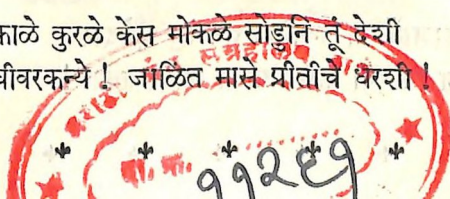 काळे कुरळे केस मोकळे सोडुनि तूं देशी
धीवरकन्ये ! जाळिंत मासे प्रीतीचे धरशी !
११२६१